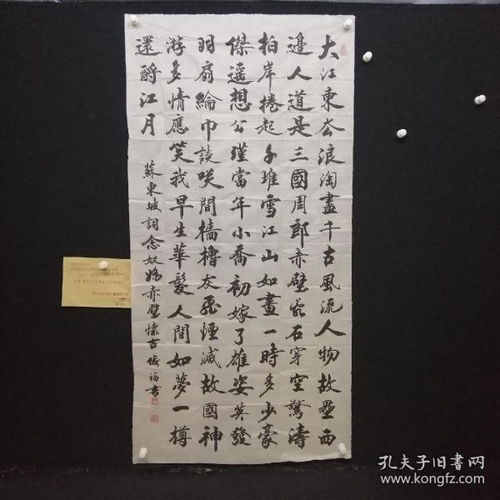 大江東去浪淘盡千古風流人物故壘西
邊人道是三國周郎赤壁乱石穿空驚濤
拍岸捲起千堆雪江山如畫一時多少豪
傑遥想公瑾當年小喬初嫁了雄姿英發
羽扇綸巾談咲間檣櫓灰飛煙滅故國神
游多情應笑我早生華髮人間如夢一樽
還酹江月
蘇東坡詞念奴嬌赤壁懷古 書
孔夫子旧书网
www.kongfz.com